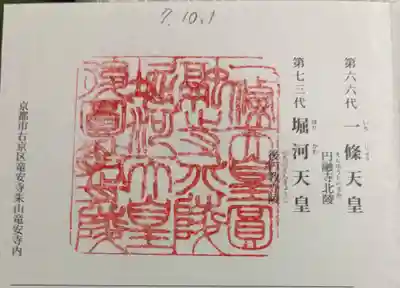 7.10.1
第六六代 一條天皇
いち じょう
円融寺北陵
第七三代 堀河天皇
ほり かわ
後円教寺陵
一條天皇圓
融寺北陵
堀河天皇
後圓教寺陵
京都市右京区竜安寺朱山竜安寺内